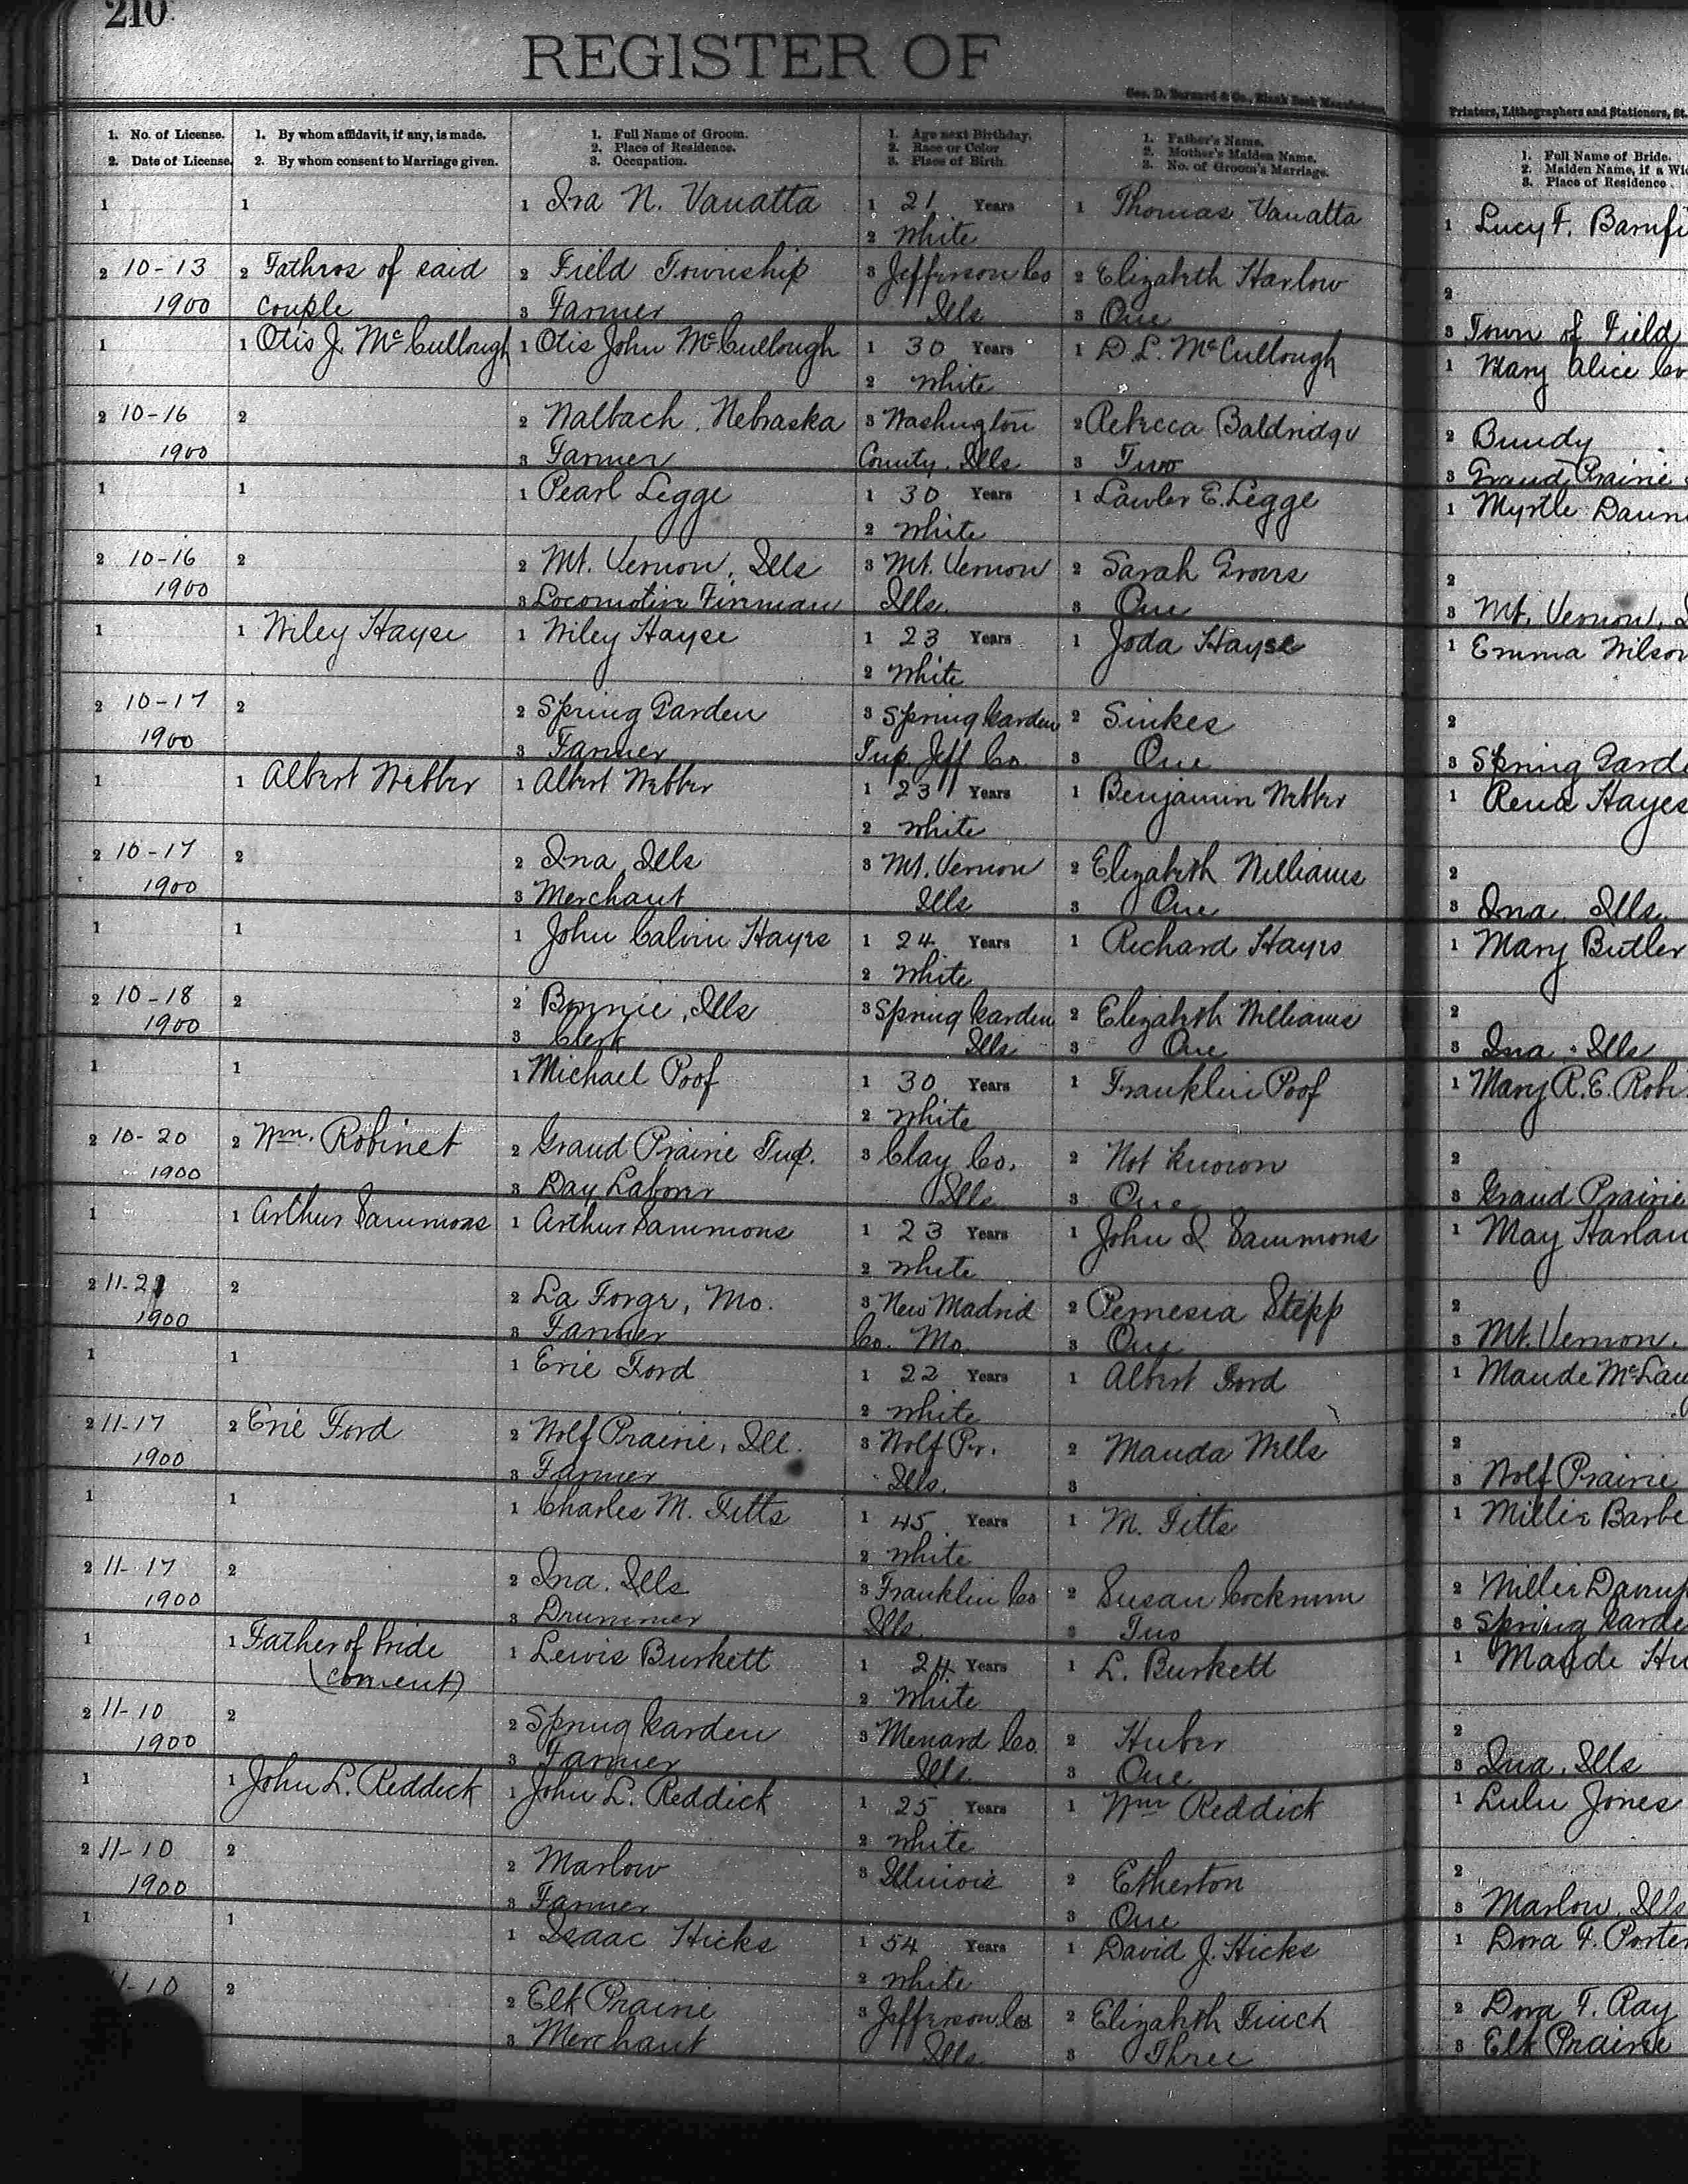 210
REGISTER OF
Geo. D. Barnard & Co., Blank Book Manufacturers,
Printers, Lithographers and Stationers, St.
1. No. of License. 1. By whom affidavit, if any, is made. 1. Full Name of Groom. 1. Age next Birthday. 1. Father's Name. 1. Full Name of Bride.
2. Date of License. 2. By whom consent to Marriage given. 2. Place of Residence. 2. Race or Color 2. Mother's Maiden Name. 2. Maiden Name, if a Wid
3. Occupation. 3. Place of Birth. 3. No. of Groom's Marriage. 3. Place of Residence.
1 1 1 Ira N. Vanatta 1 21 Years 1 Thomas Vanatta 1 Lucy F. Barnfi
2 White
2 10-13 2 Fathros of said 2 Field Township 3 Jefferson Co 2 Elizabeth Harlow 2
1900 couple 3 Farmer Ills 3 One 3 Town of Field
1 1 Otis J. McCullough 1 Otis John McCullough 1 30 Years 1 D. L. McCullough 1 Mary Alice Co
2 White
2 10-16 2 2 Walbach, Nebraska 3 Washington 2 Rebecca Baldridge 2 Bundy
1900 3 Farmer County, Ills 3 Two 3 Grand Prairie
1 1 1 Pearl Legge 1 30 Years 1 Lawler E. Legge 1 Myrtle Daun
2 White
2 10-16 2 2 Mt. Vernon, Ills 3 Mt. Vernon 2 Sarah Groves 2
1900 3 Locomotive Fireman Ills. 3 One 3 Mt. Vernon,
1 1 Wiley Hayse 1 Wiley Hayse 1 23 Years 1 Joda Hayse 1 Emma Wilson
2 White
2 10-17 2 2 Spring Garden 3 Spring Garden 2 Sinkes 2
1900 3 Farmer Twp Jeff Co. 3 One 3 Spring Garde
1 1 Albert Webber 1 Albert Webber 1 23 Years 1 Benjamin Webber 1 Rena Hayes
2 White
2 10-17 2 2 Ina, Ills 3 Mt. Vernon 2 Elizabeth Williams 2
1900 3 Merchant Ills 3 One 3 Ina, Ills.
1 1 1 John Calvin Hayes 1 24 Years 1 Richard Hayes 1 Mary Butler
2 White
2 10-18 2 2 Bonnie, Ills 3 Spring Garden 2 Elizabeth Williams 2
1900 3 Clerk Ills 3 One 3 Ina, Ills
1 1 1 Michael Poof 1 30 Years 1 Franklin Poof 1 Mary R. E. Robi
2 White
2 10-20 2 Wm. Robinet 2 Grand Prairie Twp. 3 Clay Co. 2 Not Known 2
1900 3 Day Laborer Ills 3 One 3 Grand Prairie
1 1 Arthur Sammons 1 Arthur Sammons 1 23 Years 1 John I. Sammons 1 May Harlan
2 White
2 11-21 2 2 La Forge, Mo. 3 New Madrid 2 Pernesia Stepp 2
1900 3 Farmer Co. Mo. 3 One 3 Mt. Vernon.
1 1 1 Erie Ford 1 22 Years 1 Albert Ford 1 Maude McLau
2 White
2 11-17 2 Erie Ford 2 Wolf Prairie, Ill. 3 Wolf Pr. 2 Manda Wells 2
1900 3 Farmer Ills. 3 3 Wolf Prairie
1 1 1 Charles M. Fitts 1 45 Years 1 M. Fitts 1 Millie Barbe
2 White
2 11-17 2 2 Ina. Ills 3 Franklin Co 2 Susan Cockrum 2 Millie
1900 3 Drummer Ills. 3 Two 3 Spring Garde
1 1 Father of bride 1 Lewis Burkett 1 24 Years 1 L. Burkett 1 Maude Hu
(consent) 2 White
2 11-10 2 2 Spring Garden 3 Menard Co. 2 Huber 2
1900 3 Farmer Ills. 3 One 3 Ina, Ills
1 1 John L. Reddick 1 John L. Reddick 1 25 Years 1 Wm Reddick 1 Lulu Jones
2 White
2 11-10 2 2 Marlow 3 Illinois 2 Etherton 2
1900 3 Farmer 3 One 3 Marlow, Ills
1 1 1 Isaac Hicks 1 54 Years 1 David J. Hicks 1 Dora F. Porter
2 White
11-10 2 2 Elk Prairie 3 Jefferson Co 2 Elizabeth Finch 2 Dora F. Ray
3 Merchant Ills. 3 Three 3 Elk Prairie